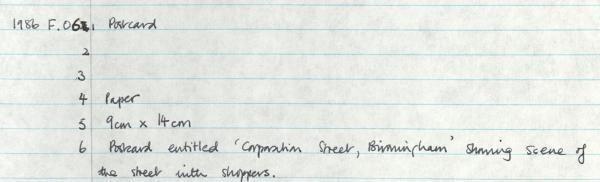 1986 F.061 Postcard
2
3
4 Paper
5 9cm x 14cm
6 Postcard entitled 'Corporation Street, Birmingham' showing scene of
the street with shoppers.